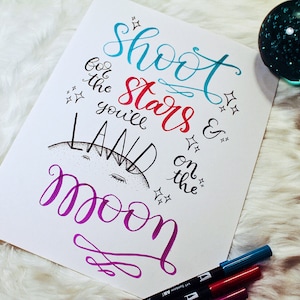 shoot
for
the stars &
you'll
LAND
on
the
moon